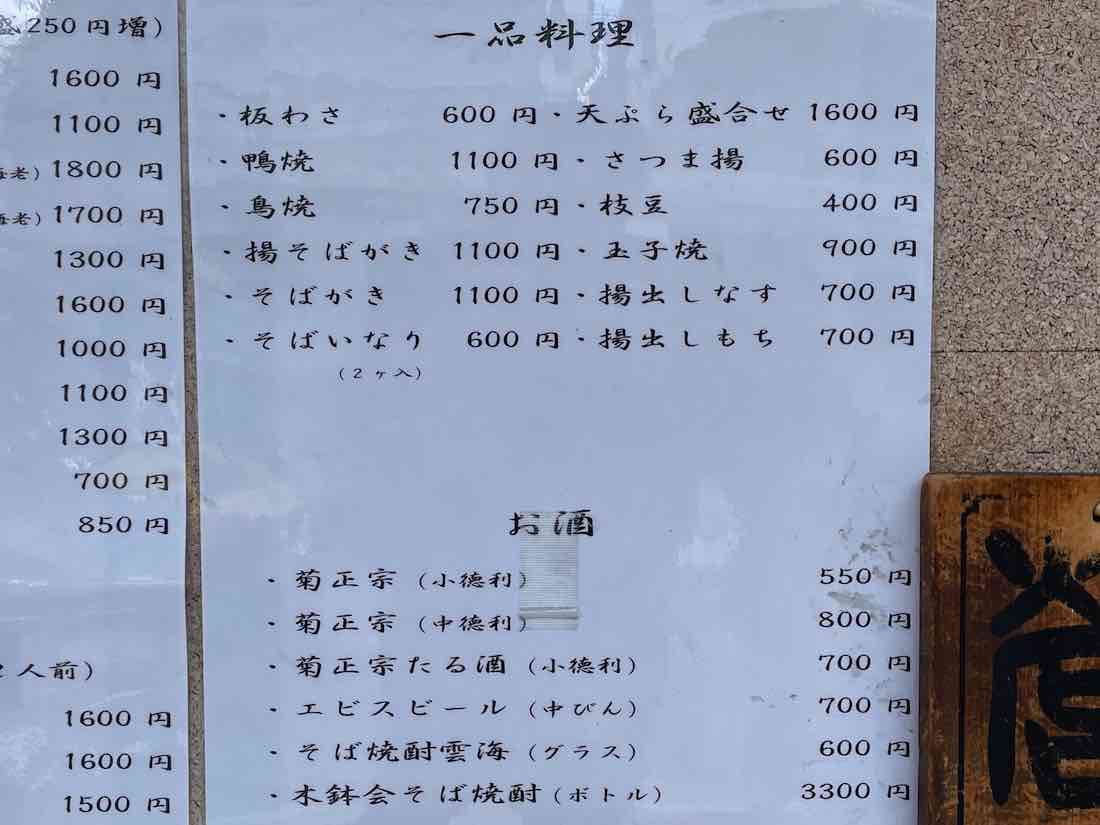 250円増)
1600 円
1100 円
1800 円
1700 円
1300 円
1600 円
1000 円
1100 円
1300 円
700 円
850 円
人前)
1600 円
1600 円
1500 円
一品料理
・板わさ 600 円・天ぷら盛合せ 1600 円
・鴨焼 1100 円・さつま揚 600 円
・鳥焼 750 円・枝豆 400 円
・揚そばがき 1100 円・玉子焼 900 円
・そばがき 1100 円・揚出しなす 700 円
・そばいなり 600 円・揚出しもち 700 円
(2ヶ入)
お酒
・菊正宗 (小徳利) 550 円
・菊正宗 (中徳利) 800 円
・菊正宗たる酒 (小徳利) 700 円
・エビスビール (中びん) 700 円
・そば焼酎雲海 (グラス) 600 円
・木鉢会そば焼酎 (ボトル) 3300 円